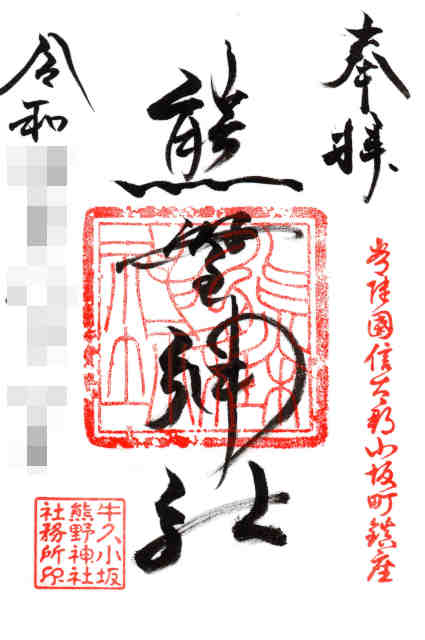 奉拝
常陸國信太郡小坂町鎮座
熊野神社
令和
牛久小坂
熊野神社
社務所印